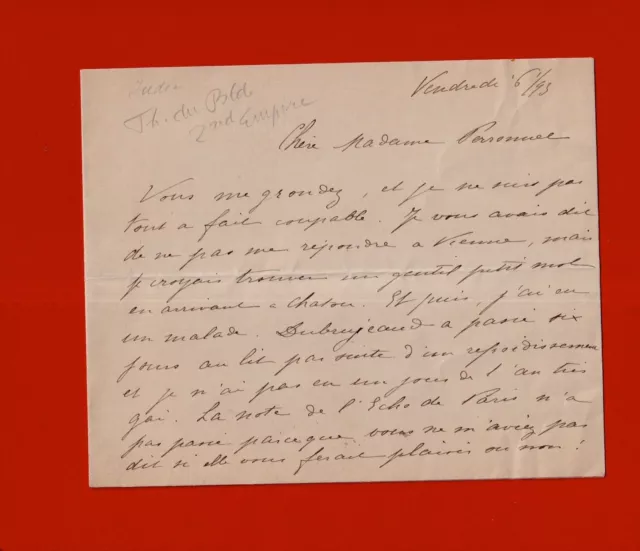 Th. du Bld
2nd Empire
Vendredi 6/93
Chère Madame Perronnet
Vous me grondez, et je ne suis pas
tout a fait coupable. Je vous avais dit
de ne pas me répondre a Vienne, mais
je croyais trouver un gentil petit mot
en arrivant a Chatou. Et puis, j'ai eu
un malade. Dubrujeaud a passé six
jours au lit par suite d'un refroidissement
et je n'ai pas eu un jour de l'an très
gai. La note de l'Echo de Paris n'a
pas passé parceque vous ne m'aviez pas
dit si elle vous ferait plaisir ou non!